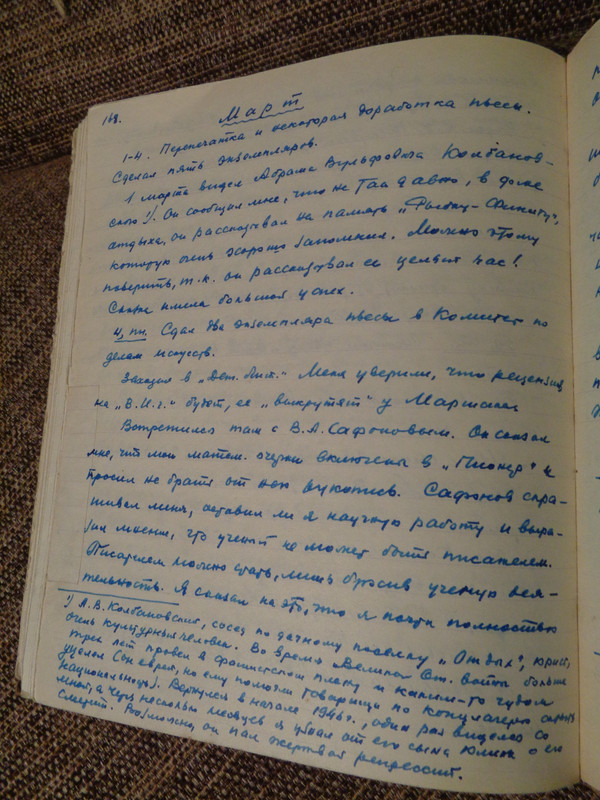 168.
Март
1-4. Перепечатка и некоторая доработка пьесы.
Сделал пять экземпляров.
1 марта видел Абрама Вульфовича Колбанов-
ского 1). Он сообщил мне, что на в доме
отдыха, он рассказывал на память „Рыбку-Финиту",
которую очень хорошо запомнил. Можно этому
поверить, т.к. он рассказывал ее целый час!
Сказка имела большой успех.
4, пн. Сдал два экземпляра пьесы в Комитет по
делам искусств.
Заходил в „Дет. Лит." Меня уверили, что рецензия
на „В.И.г." будет, ее „выкрутят" у Маршака
Встретился там с В.А. Сафоновым. Он сказал
мне, что мои матем. очерки включены в „Пионер" и
просил не брать от них рукописей. Сафонов спра-
шивал меня, оставил ли я научную работу и выра-
зил мнение, что ученый не может быть писателем.
Писателем можно стать, лишь бросив ученую дея-
тельность. Я сказал на это, что я почти полностью
1) А.В. Колбановский, сосед по дачному поселку „Отдых", юрист,
очень культурный человек. Во время Великой От. войны больше
трех лет провел в фашистском плену и каким-то чудом
уцелел (он еврей, но ему помогли товарищи по концлагерю скрыть
национальность). Вернулся в начале 1946 г., один раз виделся со
мной, а через несколько месяцев я узнал от его сына Юлика о его
смерти. Возможно, он пал жертвой репрессий.